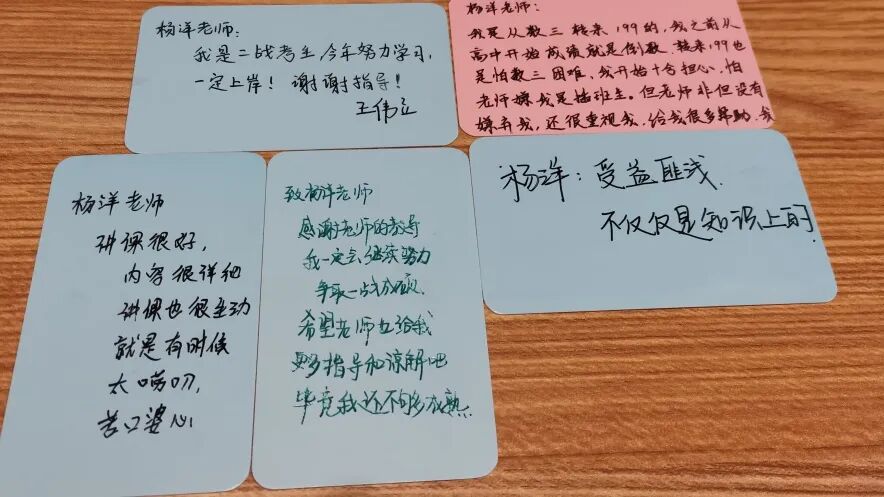 杨洋老师:
我是二战考生,今年努力学习,
一定上岸! 谢谢指导!
王伟立
杨洋老师:
我是从数三转来199的,我之前从
高中开始成绩就是倒数,转来199也
是怕数三困难,我开始十分担心,怕
老师嫌我是插班生。但老师非但没有
嫌弃我,还很重视我,给我很多帮助,我
杨洋老师
讲课很好,
内容很详细
讲课也很生动
就是有时候
太唠叨,
苦口婆心
致杨洋老师
感谢老师的教导
我一定会继续努力
争取一战成硕
希望老师也给我
更多指导和谅解吧
毕竟我还不够成熟
杨洋:受益匪浅.
不仅仅是知识上的.